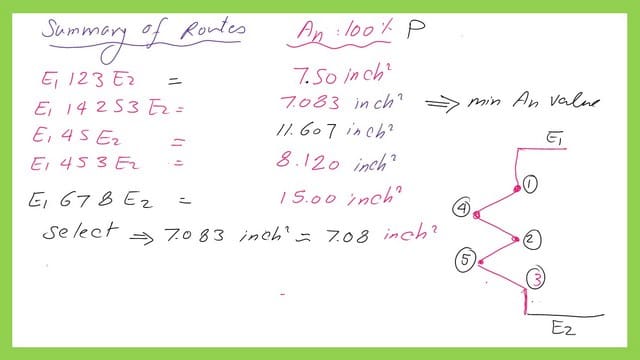 Summary of Routes An : 100% P
E1 123 E2 = 7.50 inch²
E1 14253 E2 = 7.083 inch² ⇒ min An value
E1 45 E2 = 11.607 inch²
E1 453 E2 = 8.120 inch²
E1 678 E2 = 15.00 inch²
select ⇒ 7.083 inch² = 7.08 inch²
E1
1
4
2
5
3
E2